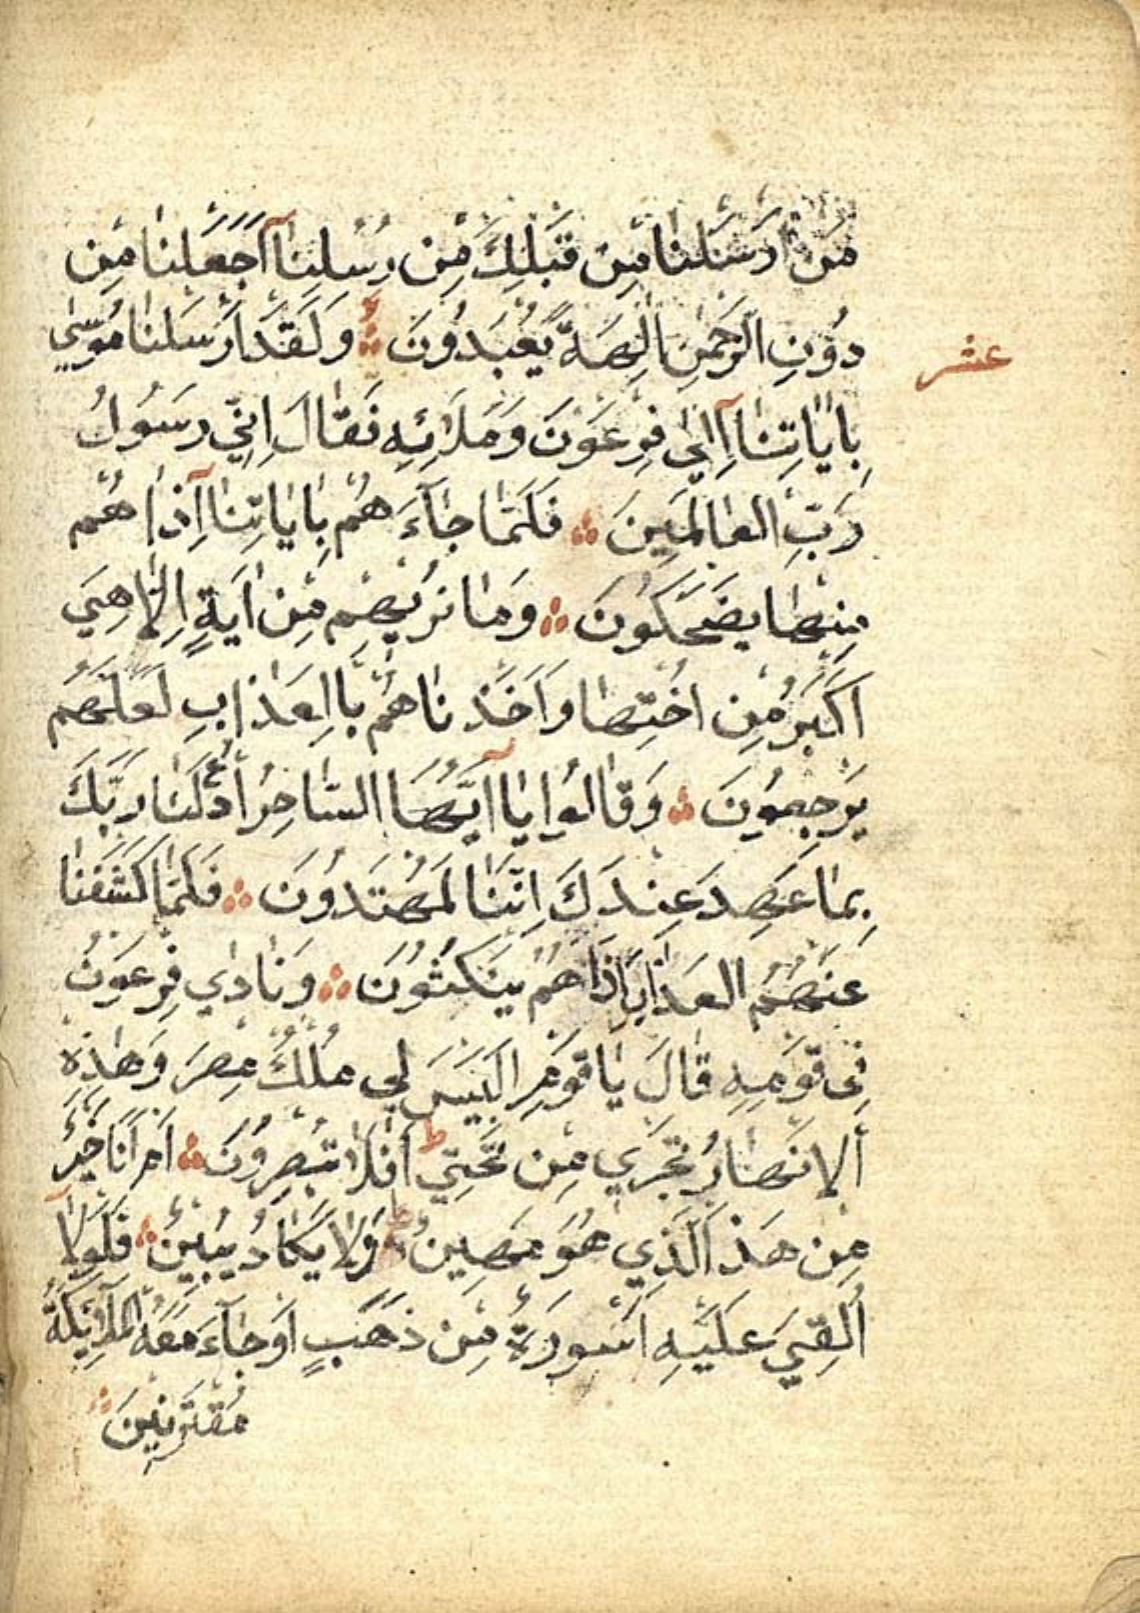 مَنْ اَرْسَلْنٰا مِنْ قَبْلِكَ مِنْ رُسُلِنٰآ اَجَعَلْنٰا مِنْ
دُوْنِ الرَّحْمٰنِ اٰلِهَةً يُعْبَدُوْنَ وَلَقَدْ اَرْسَلْنٰا مُوْسٰي
عشر
بِاٰيٰاتِنٰآ اِلٰي فِرْعَوْنَ وَمَلَائِهِ فَقٰالَ اِنّٖي رَسُوْلُ
رَبِّ الْعٰالَمِيْنَ فَلَمّٰا جٰآءَهُمْ بِاٰيٰاتِنٰآ اِذٰا هُمْ
مِنْهٰا يَضْحَكُوْنَ وَمٰا نُرِيْهِمْ مِنْ اٰيَةٍ اِلّٰا هِيَ
اَكْبَرُ مِنْ اُخْتِهٰا وَاَخَذْنٰاهُمْ بِاالْعَذٰابِ لَعَلَّهُمْ
يَرْجِعُوْنَ وَقٰالُوْا يٰآ اَيُّهَا السّٰاحِرُ ادْعُ لَنٰا رَبَّكَ
بِمٰا عَهِدَ عِنْدَكَ اِنَّنٰا لَمُهْتَدُوْنَ فَلَمّٰا كَشَفْنٰا
عَنْهُمُ الْعَذٰابَ اِذٰا هُمْ يَنْكُثُوْنَ وَنٰادٰي فِرْعَوْنُ
فِي قَوْمِهِ قٰالَ يٰا قَوْمِ اَلَيْسَ لِي مُلْكُ مِصْرَ وَهٰذِهِ
الْاَنْهٰارُ تَجْرِي مِنْ تَحْتِي ط اَفَلٰا تُبْصِرُوْنَ اَمْ اَنَا خَيْرٌ
مِنْ هٰذَ الَّذِي هُوَ مَهِيْنٌ وَلٰا يَكٰادُ يُبِيْنُ فَلَوْلٰآ
اُلْقِيَ عَلَيْهِ اَسْوِرَةٌ مِنْ ذَهَبٍ اَوْ جٰآءَ مَعَهُ الْمَلٰٓائِكَةُ
مُقْتَرِنِيْنَ